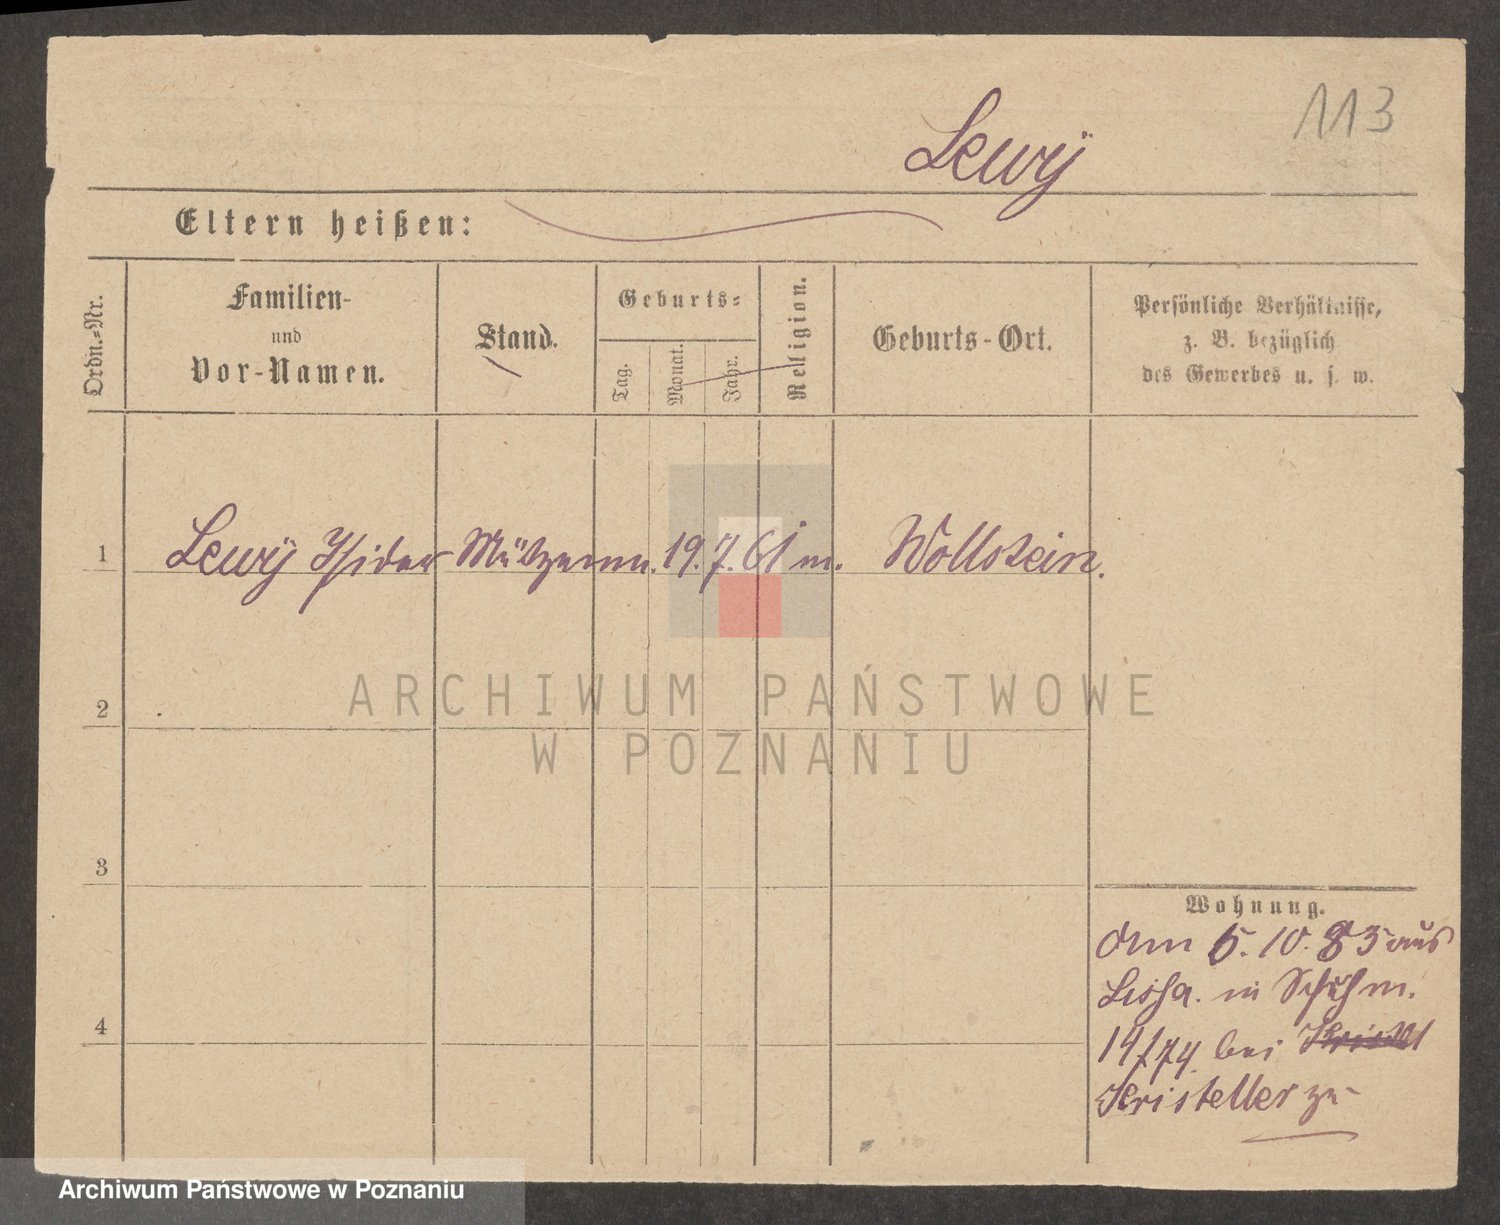 113
Lewÿ
Eltern heißen:
Ordn.-Nr.
Familien-
und
Vor-Namen.
Stand.
Geburts-
Tag.
Monat.
Jahr.
Religion.
Geburts-Ort.
Persönliche Verhältnisse,
z. B. bezüglich
des Gewerbes u. s. w.
1 Lewÿ Isidor Mützenm. 19. 7. 61 m. Wollstein.
2
3
4
Wohnung.
5. 10. 83 aus
Lissa. in Schuhm.
14/74 bei
Kristeller zu
ARCHIWUM PAŃSTWOWE
W POZNANIU
Archiwum Państwowe w Poznaniu